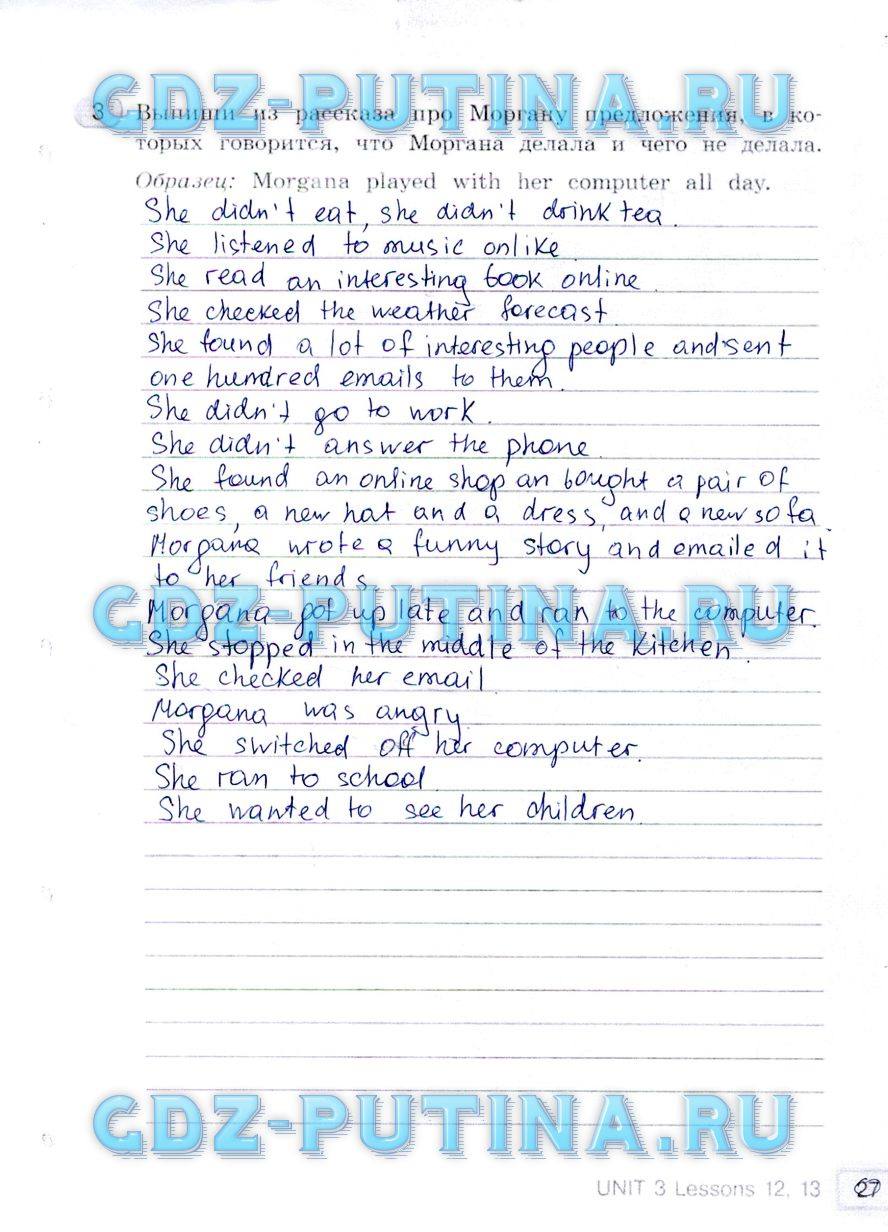 GDZ-PUTINA.RU
3 Выпиши из рассказа про Моргану предложения, в ко-
торых говорится, что Моргана делала и чего не делала.
Образец: Morgana played with her computer all day.
She didn't eat, she didn't drink tea.
She listened to music onlike
She read an interesting book online.
She checked the weather forecast.
She found a lot of interesting people and sent
one hundred emails to them.
She didn't go to work.
She didn't answer the phone.
She found an online shop an bought a pair of
shoes, a new hat and a dress, and a new sofa.
Morgana wrote a funny story and emailed it
to her friends
GDZ-PUTINA.RU
Morgana got up late and ran to the computer.
She stopped in the middle of the kitchen.
She checked her email.
Morgana was angry.
She switched off her computer.
She ran to school.
She wanted to see her children.
GDZ-PUTINA.RU
UNIT 3 Lessons 12, 13 27